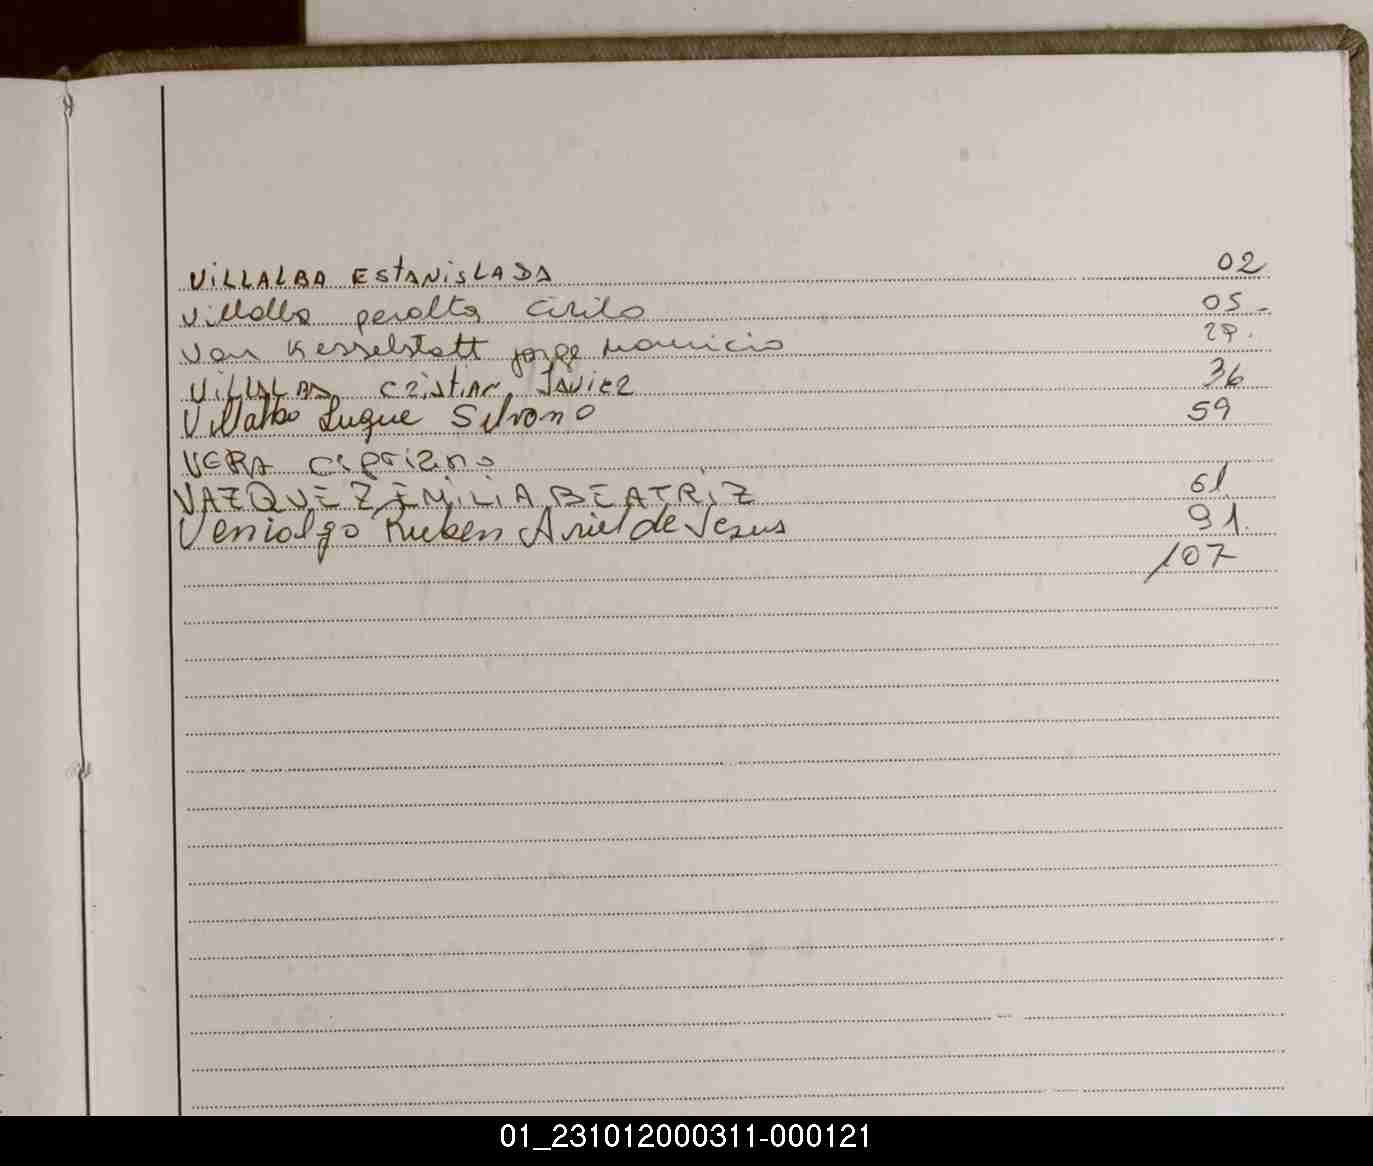 VILLALBA EStANiSLADA 02
villalba peralta Cirilo 05.
Von Kesselstatt jorge mauricio 27.
VillALBA cristian Javier 36
Villalba Luque Silvano 59
VERA cipriano
VAZQUEZ EMILIA BEATRIZ 61
Veniolgo Ruben Ariel de Jesus 91.
107
01_231012000311-000121